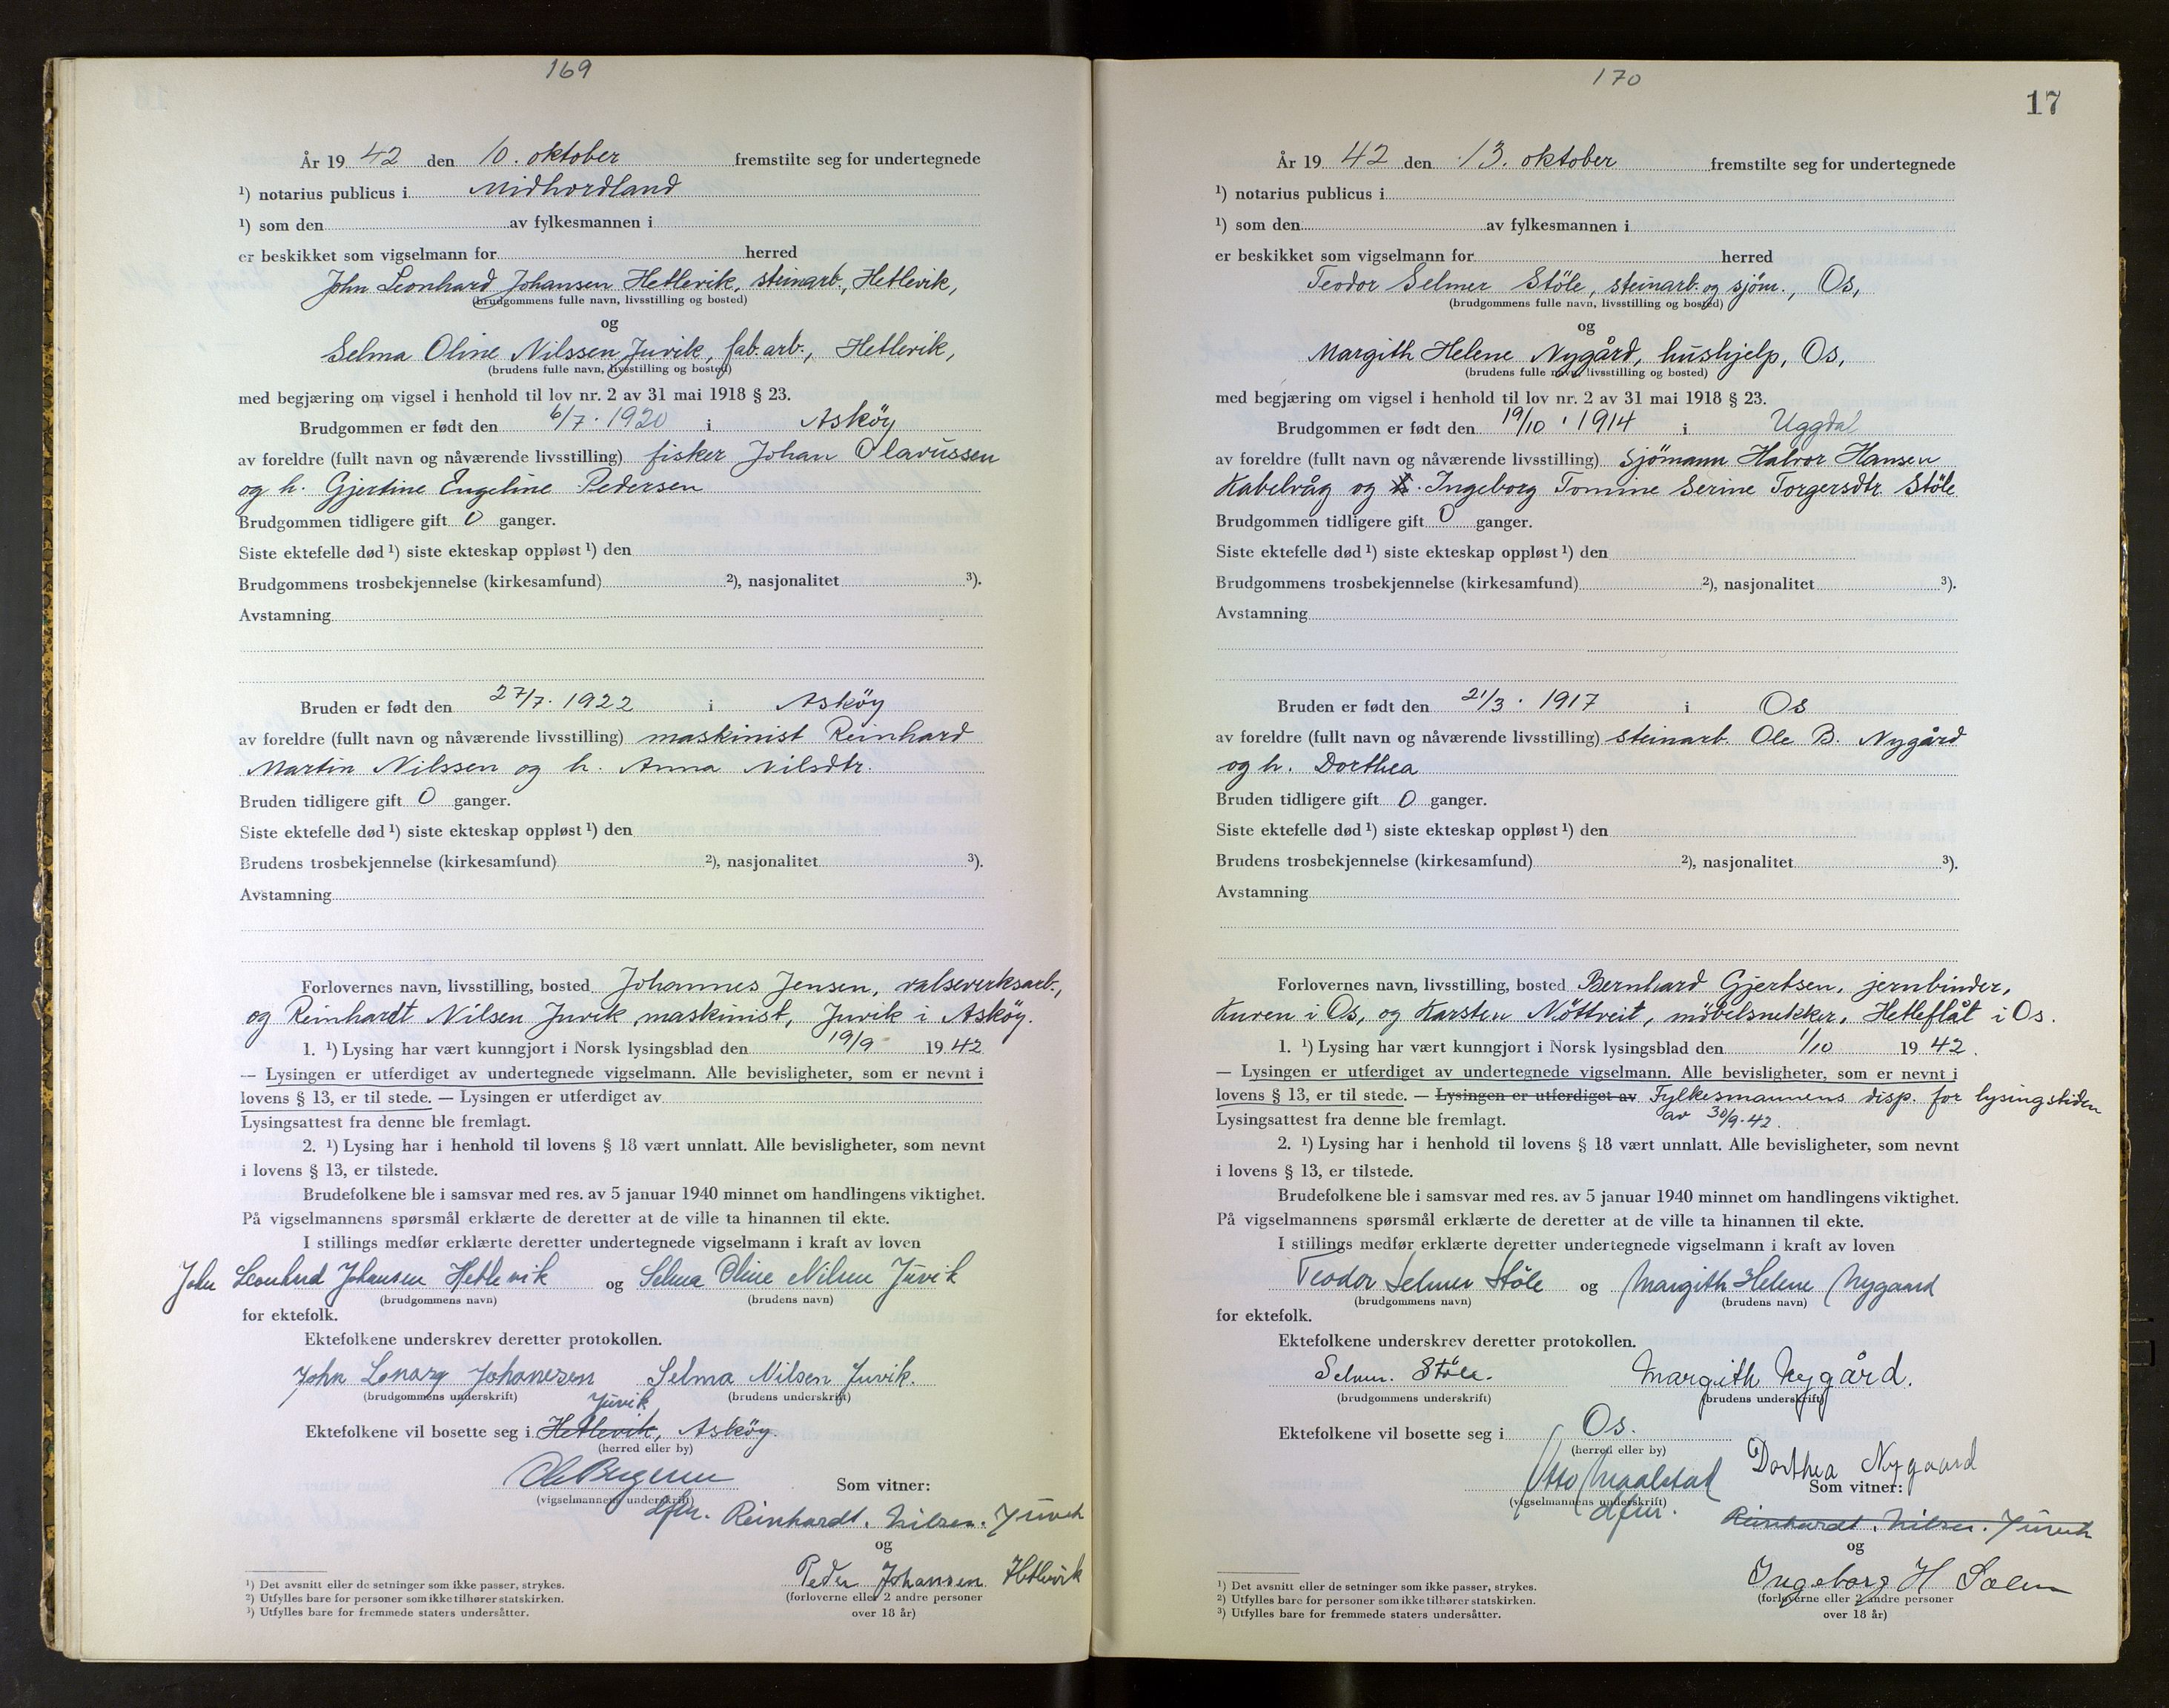 169
År 19 42 den 10. oktober fremstilte seg for undertegnede
¹) notarius publicus i Midhordland
¹) som den av fylkesmannen i
er beskikket som vigselmann for herred
John Leonhard Johansen Hetlevik, steinarb., Hetlevik,
(brudgommens fulle navn, livsstilling og bosted)
og
Selma Oline Nilssen Juvik, fab.arb., Hetlevik,
(brudens fulle navn, livsstilling og bosted)
med begjæring om vigsel i henhold til lov nr. 2 av 31 mai 1918 § 23.
Brudgommen er født den 6/7. 1920 i Asköy
av foreldre (fullt navn og nåværende livsstilling) fisker Johan Olavussen
og h. Gjertine Engeline Pedersen
Brudgommen tidligere gift 0 ganger.
Siste ektefelle død ¹) siste ekteskap oppløst ¹) den
Brudgommens trosbekjennelse (kirkesamfund) ²), nasjonalitet ³).
Avstamning
Bruden er født den 27/7. 1922 i Asköy
av foreldre (fullt navn og nåværende livsstilling) maskinist Reinhard
Martin Nilssen og h. Anna Nilsdtr.
Bruden tidligere gift 0 ganger.
Siste ektefelle død ¹) siste ekteskap oppløst ¹) den
Brudens trosbekjennelse (kirkesamfund) ²), nasjonalitet ³).
Avstamning
Forlovernes navn, livsstilling, bosted Johannes Jensen, valseverksarb.,
og Reinhardt Nilsen Juvik, maskinist, Juvik i Asköy.
1. ¹) Lysing har vært kunngjort i Norsk lysingsblad den 19/9 19 42
— Lysingen er utferdiget av undertegnede vigselmann. Alle bevisligheter, som er nevnt i
lovens § 13, er til stede. — Lysingen er utferdiget av
Lysingsattest fra denne ble fremlagt.
2. ¹) Lysing har i henhold til lovens § 18 vært unnlatt. Alle bevisligheter, som nevnt
i lovens § 13, er tilstede.
Brudefolkene ble i samsvar med res. av 5 januar 1940 minnet om handlingens viktighet.
På vigselmannens spørsmål erklærte de deretter at de ville ta hinannen til ekte.
I stillings medfør erklærte deretter undertegnede vigselmann i kraft av loven
John Leonhard Johansen Hetlevik og Selma Oline Nilsen Juvik
(brudgommens navn) (brudens navn)
for ektefolk.
Ektefolkene underskrev deretter protokollen.
John Lenarg Johanesen Selma Nilsen Juvik.
(brudgommens underskrift) (brudens underskrift)
Juvik
Ektefolkene vil bosette seg i Hetlevik, Asköy.
(herred eller by)
Som vitner:
(vigselmannens underskrift)
dfm. Reinhardt. Nilsen. Juvik
og
Peder Johansen Hetlevik
(forloverne eller 2 andre personer
over 18 år)
¹) Det avsnitt eller de setninger som ikke passer, strykes.
²) Utfylles bare for personer som ikke tilhører statskirken.
³) Utfylles bare for fremmede staters undersåtter.
170
17
År 19 42 den 13. oktober fremstilte seg for undertegnede
¹) notarius publicus i
¹) som den av fylkesmannen i
er beskikket som vigselmann for herred
Teodor Selmer Stöle, steinarb. og sjöm., Os,
(brudgommens fulle navn, livsstilling og bosted)
og
Margith Helene Nygård, hushjelp, Os,
(brudens fulle navn, livsstilling og bosted)
med begjæring om vigsel i henhold til lov nr. 2 av 31 mai 1918 § 23.
Brudgommen er født den 19/10. 1914 i Uggdal
av foreldre (fullt navn og nåværende livsstilling) Sjömann Halvor Hansen
Kabelvåg og h. Ingeborg Tomine Serine Torgersdtr. Stöle
Brudgommen tidligere gift 0 ganger.
Siste ektefelle død ¹) siste ekteskap oppløst ¹) den
Brudgommens trosbekjennelse (kirkesamfund) ²), nasjonalitet ³).
Avstamning
Bruden er født den 21/3. 1917 i Os
av foreldre (fullt navn og nåværende livsstilling) steinarb. Ole B. Nygård
og h. Dorthea
Bruden tidligere gift 0 ganger.
Siste ektefelle død ¹) siste ekteskap oppløst ¹) den
Brudens trosbekjennelse (kirkesamfund) ²), nasjonalitet ³).
Avstamning
Forlovernes navn, livsstilling, bosted Bernhard Gjertsen, jernbinder,
Kuven i Os, og Karsten Nöttveit, möbelsnekker, Hetleflåt i Os.
1. ¹) Lysing har vært kunngjort i Norsk lysingsblad den 1/10 19 42.
— Lysingen er utferdiget av undertegnede vigselmann. Alle bevisligheter, som er nevnt i
lovens § 13, er til stede. — Lysingen er utferdiget av Fylkesmannens disp. for lysingstiden
Lysingsattest fra denne ble fremlagt. av 30/9.42.
2. ¹) Lysing har i henhold til lovens § 18 vært unnlatt. Alle bevisligheter, som nevnt
i lovens § 13, er tilstede.
Brudefolkene ble i samsvar med res. av 5 januar 1940 minnet om handlingens viktighet.
På vigselmannens spørsmål erklærte de deretter at de ville ta hinannen til ekte.
I stillings medfør erklærte deretter undertegnede vigselmann i kraft av loven
Teodor Selmer Stöle og Margith Helene Nygaard
(brudgommens navn) (brudens navn)
for ektefolk.
Ektefolkene underskrev deretter protokollen.
Selm. Støle. Margith Nygård.
(brudgommens underskrift) (brudens underskrift)
Ektefolkene vil bosette seg i Os.
(herred eller by)
Otto Maalstad Dorthea Nygaard
Som vitner:
(vigselmannens underskrift)
dfm.
Reinhardt. Nilsen. Juvik
og
Ingeborg H Solem
(forloverne eller 2 andre personer
over 18 år)
¹) Det avsnitt eller de setninger som ikke passer, strykes.
²) Utfylles bare for personer som ikke tilhører statskirken.
³) Utfylles bare for fremmede staters undersåtter.